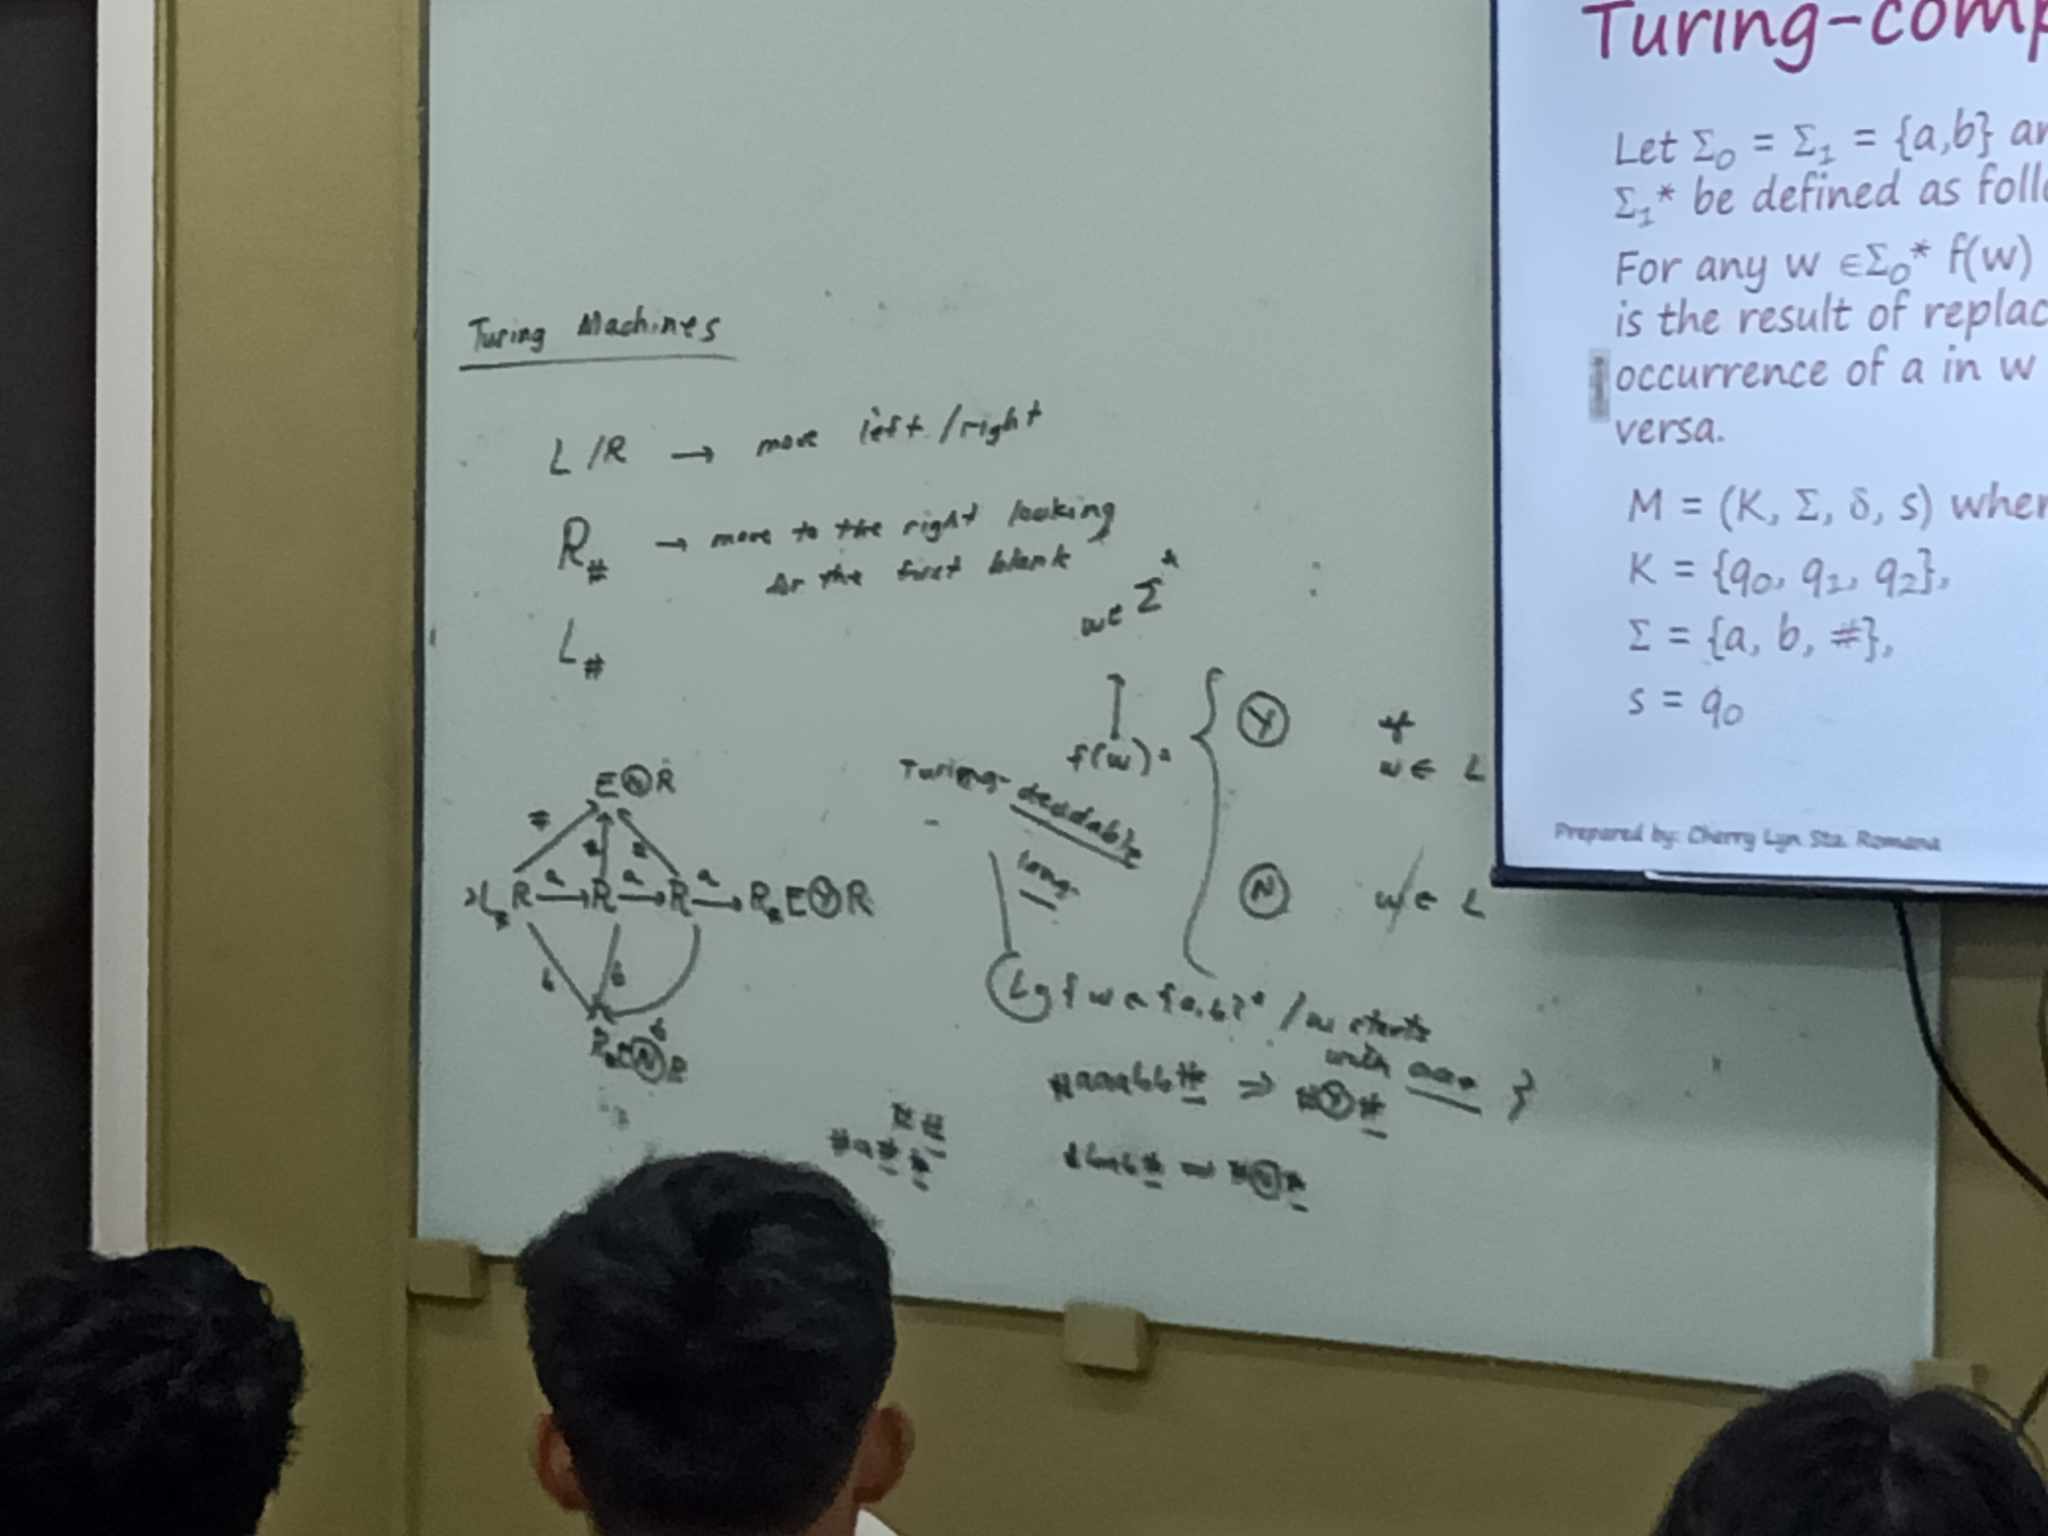 Turing Machines
L/R → move left/right
R# → move to the right looking
for the first blank
L#
w ∈ Σ*
f(w) =
Ⓨ if
w ∈ L
Ⓝ w ∉ L
Turing-decidable
lang.
E Ⓝ R
#
>L# R a→ R a→ R a→ R# E Ⓨ R
b b b
R# E Ⓝ R
L = { w ∈ {a,b}* / w starts
with aaa }
#aaabb# ⇒ #Ⓨ#
##
#a#
Turing-comp
Let Σ0 = Σ1 = {a,b} an
Σ1* be defined as follo
For any w ∈Σ0* f(w)
is the result of replac
occurrence of a in w
versa.
M = (K, Σ, δ, s) wher
K = {q0, q1, q2},
Σ = {a, b, #},
s = q0
Prepared by: Cherry Lyn Sta. Romana